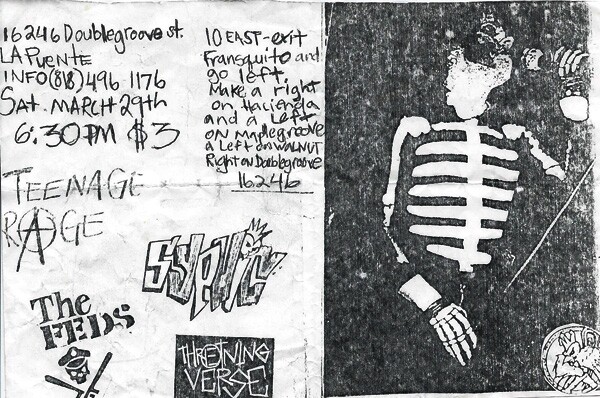 16246 Doublegroove st.
LA Puente
INFO (818) 496-1176
Sat. MARCH 29th
6:30 PM $3
10 EAST-exit
Fransquito and
go left.
Make a right
on Hacienda
and a Left
on Maplegroove
a Left on WALNUT
Right on Doublegroove
16246
TEENAGE
RAGE
The
FEDS
THRETNING
VERSE